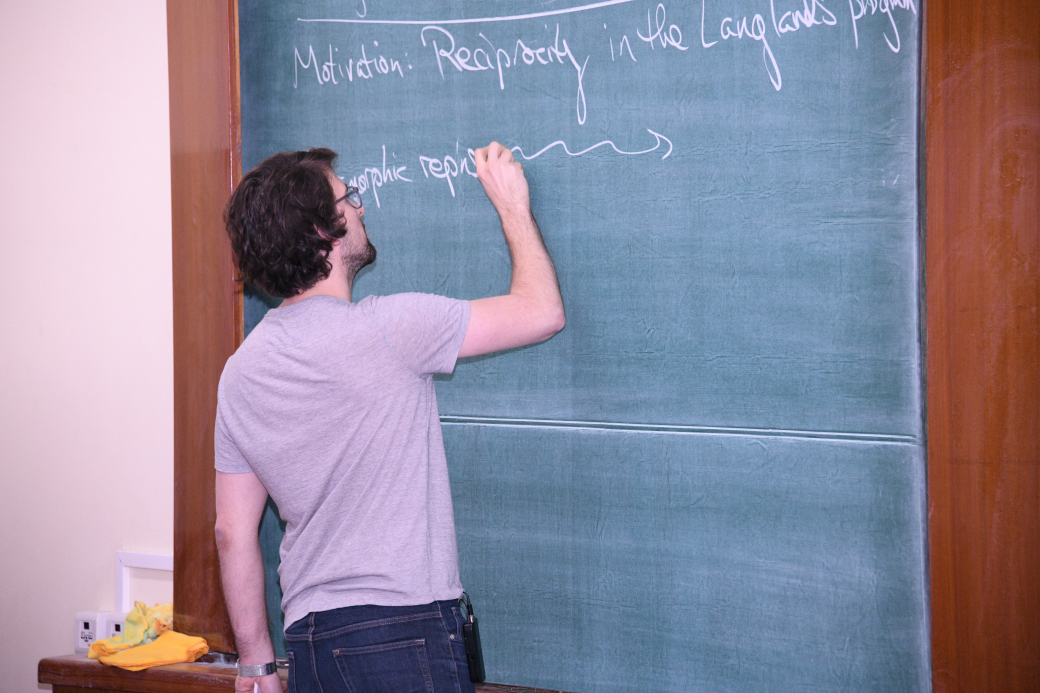 Motivation: Reciprocity in the Langlands program
morphic repns